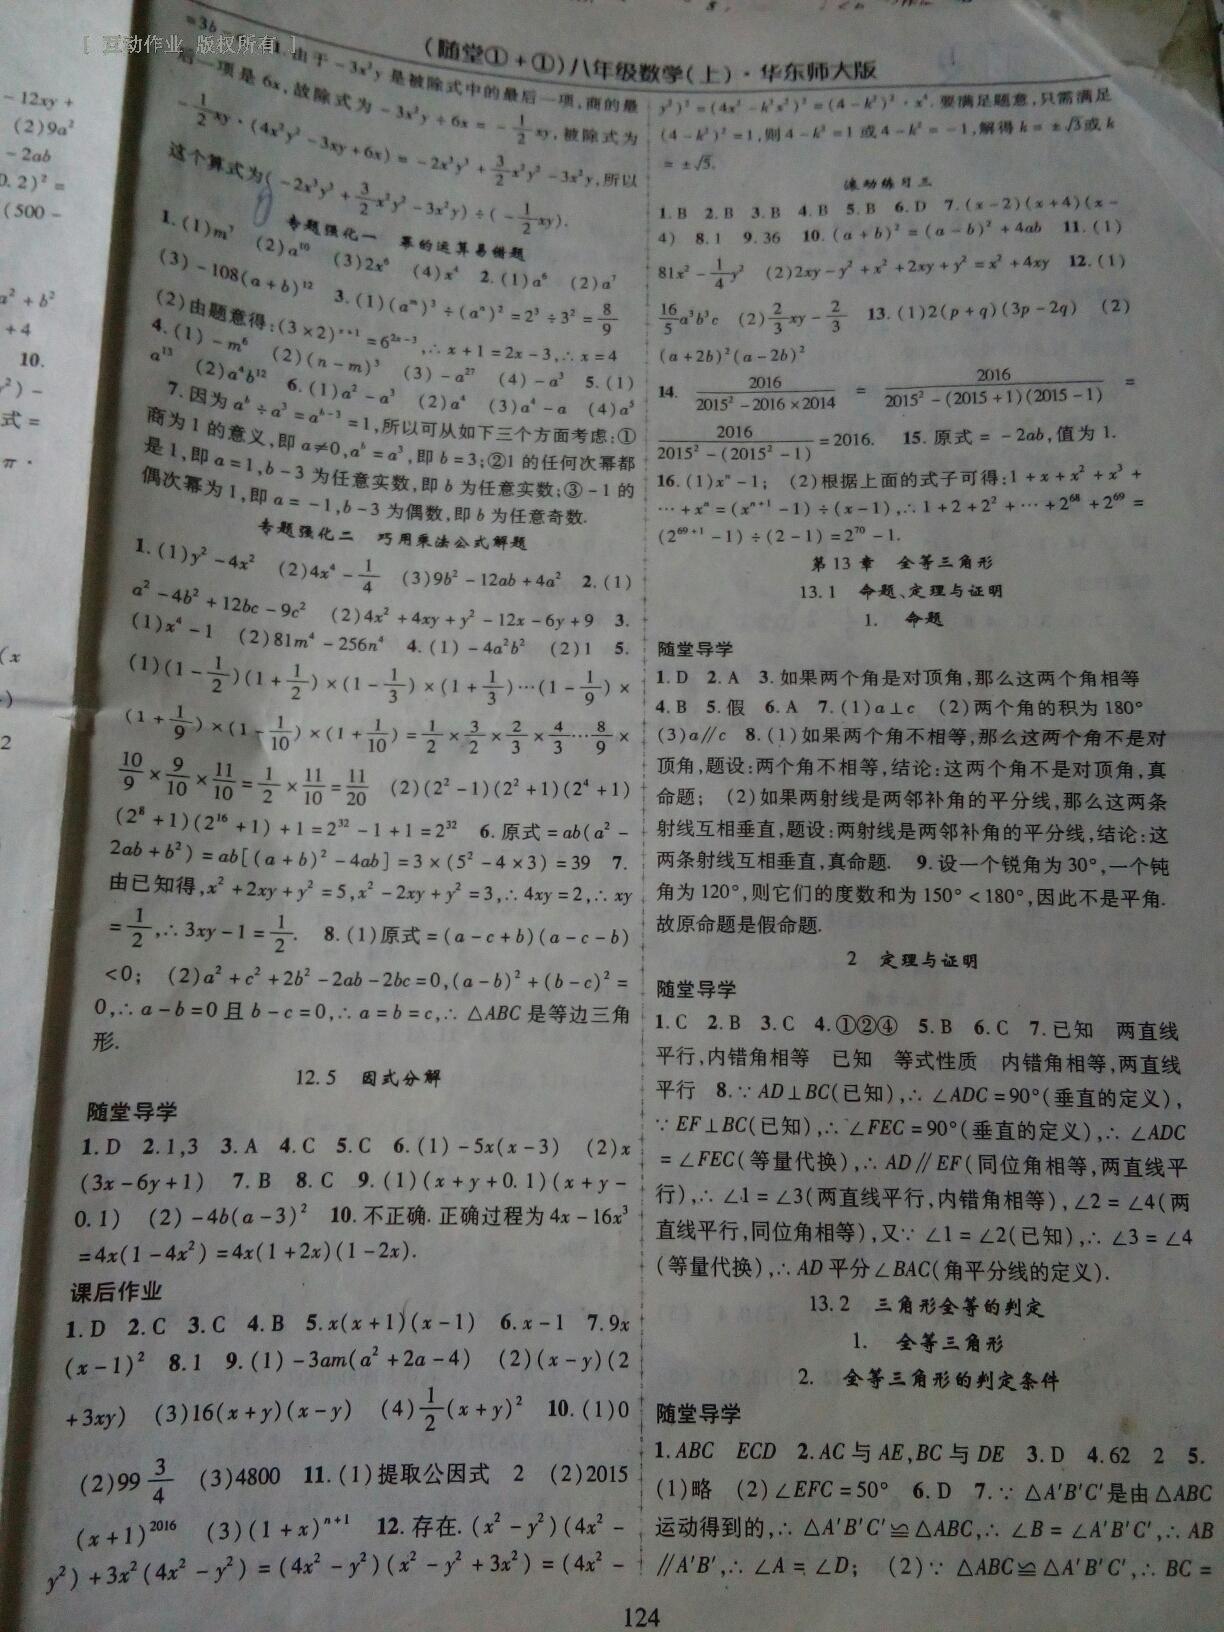 [ 互动作业 版权所有 ]
(随堂①+①)八年级数学(上)·华东师大版
=36
由于-3x²y是被除式中的最后一项,商的最
后一项是6x,故除式为-3x²y÷6x=-1/2xy,被除式为
-1/2xy·(4x²y²-3xy+6x)=-2x³y³+3/2x²y²-3x²y,所以
这个算式为(-2x³y³+3/2x²y²-3x²y)÷(-1/2xy).
专题强化一 幂的运算易错题
1.(1)m⁷ (2)a¹⁰ (3)2x⁶ (4)x⁴ 2.(1)a⁶ (2)a⁷
(3)-108(a+b)¹² 3.(1)(aᵐ)³÷(aⁿ)²=2³÷3²=8/9
(2)由题意得:(3×2)ˣ⁺¹=6²ˣ⁻³,∴x+1=2x-3,∴x=4
4.(1)-m⁶ (2)(n-m)³ (3)-a²⁷ (4)-a³ 5.(1)
a¹³ (2)a⁴b¹² 6.(1)a²-a³ (2)a⁴ (3)a⁴-a (4)a⁵
7.因为aᵇ÷a³=aᵇ⁻³=1,所以可从如下三个方面考虑:①
商为1的意义,即a≠0,aᵇ=a³,即b=3;②1的任何次幂都
是1,即a=1,b-3为任意实数,即b为任意实数;③-1的
偶次幂为1,即a=-1,b-3为偶数,即b为任意奇数.
专题强化二 巧用乘法公式解题
1.(1)y²-4x² (2)4x⁴-1/4 (3)9b²-12ab+4a² 2.(1)
a²-4b²+12bc-9c² (2)4x²+4xy+y²-12x-6y+9 3.
(1)x⁴-1 (2)81m⁴-256n⁴ 4.(1)-4a²b² (2)1 5.
(1)(1-1/2)(1+1/2)×(1-1/3)×(1+1/3)…(1-1/9)×
(1+1/9)×(1-1/10)×(1+1/10)=1/2×3/2×2/3×4/3…8/9×
10/9×9/10×11/10=1/2×11/10=11/20 (2)(2²-1)(2²+1)(2⁴+1)
(2⁸+1)(2¹⁶+1)+1=2³²-1+1=2³² 6.原式=ab(a²-
2ab+b²)=ab[(a+b)²-4ab]=3×(5²-4×3)=39 7.
由已知得,x²+2xy+y²=5,x²-2xy+y²=3,∴4xy=2,∴xy
=1/2,∴3xy-1=1/2. 8.(1)原式=(a-c+b)(a-c-b)
<0; (2)a²+c²+2b²-2ab-2bc=0,(a-b)²+(b-c)²=
0,∴a-b=0且b-c=0,∴a=b=c,∴△ABC是等边三角
形.
12.5 因式分解
随堂导学
1.D 2.1,3 3.A 4.C 5.C 6.(1)-5x(x-3) (2)x
(3x-6y+1) 7.B 8.C 9.(1)(x+y+0.1)(x+y-
0.1) (2)-4b(a-3)² 10.不正确.正确过程为4x-16x³
=4x(1-4x²)=4x(1+2x)(1-2x).
课后作业
1.D 2.C 3.C 4.B 5.x(x+1)(x-1) 6.x-1 7.9x
(x-1)² 8.1 9.(1)-3am(a²+2a-4) (2)(x-y)(2
+3xy) (3)16(x+y)(x-y) (4)1/2(x+y)² 10.(1)0
(2)99 3/4 (3)4800 11.(1)提取公因式 2 (2)2015
(x+1)²⁰¹⁶ (3)(1+x)ⁿ⁺¹ 12.存在.(x²-y²)(4x²-
y²)+3x²(4x²-y²)=(4x²-y²)(x²-y²+3x²)=(4x²-
y²)²=(4x²-k²x²)²=(4-k²)²·x⁴.要满足题意,只需满足
(4-k²)²=1,则4-k²=1或4-k²=-1,解得k=±√3或k
=±√5.
滚动练习三
1.B 2.B 3.B 4.B 5.B 6.D 7.(x-2)(x+4)(x-
4) 8.1 9.36 10.(a+b)²=(a-b)²+4ab 11.(1)
81x²-1/4y² (2)2xy-y²+x²+2xy+y²=x²+4xy 12.(1)
16/5a³b³c (2)2/3xy-2/3 13.(1)2(p+q)(3p-2q) (2)
(a+2b)²(a-2b)²
14. 2016/(2015²-2016×2014) = 2016/(2015²-(2015+1)(2015-1)) =
2016/(2015²-(2015²-1))=2016. 15.原式=-2ab,值为1.
16.(1)xⁿ-1; (2)根据上面的式子可得:1+x+x²+x³+
…+xⁿ=(xⁿ⁺¹-1)÷(x-1),∴1+2+2²+…+2⁶⁸+2⁶⁹=
(2⁶⁹⁺¹-1)÷(2-1)=2⁷⁰-1.
第13章 全等三角形
13.1 命题、定理与证明
1. 命题
随堂导学
1.D 2.A 3.如果两个角是对顶角,那么这两个角相等
4.B 5.假 6.A 7.(1)a⊥c (2)两个角的积为180°
(3)a∥c 8.(1)如果两个角不相等,那么这两个角不是对
顶角,题设:两个角不相等,结论:这两个角不是对顶角,真
命题; (2)如果两射线是两邻补角的平分线,那么这两条
射线互相垂直,题设:两射线是两邻补角的平分线,结论:这
两条射线互相垂直,真命题. 9.设一个锐角为30°,一个钝
角为120°,则它们的度数和为150°<180°,因此不是平角.
故原命题是假命题.
2 定理与证明
随堂导学
1.C 2.B 3.C 4.①②④ 5.B 6.C 7.已知 两直线
平行,内错角相等 已知 等式性质 内错角相等,两直线
平行 8.∵AD⊥BC(已知),∴∠ADC=90°(垂直的定义),
∵EF⊥BC(已知),∴∠FEC=90°(垂直的定义),∴∠ADC
=∠FEC(等量代换),∴AD∥EF(同位角相等,两直线平
行),∴∠1=∠3(两直线平行,内错角相等),∠2=∠4(两
直线平行,同位角相等),又∵∠1=∠2(已知),∴∠3=∠4
(等量代换),∴AD平分∠BAC(角平分线的定义).
13.2 三角形全等的判定
1. 全等三角形
2. 全等三角形的判定条件
随堂导学
1.ABC ECD 2.AC与AE,BC与DE 3.D 4.62 2 5.
(1)略 (2)∠EFC=50° 6.D 7.∵△A′B′C′是由△ABC
运动得到的,∴△A′B′C′≌△ABC,∴∠B=∠A′B′C′,∴AB
∥A′B′,∴∠A=∠D; (2)∵△ABC≌△A′B′C′,∴BC=
124
-12xy+
(2)9a²
-2ab
0.2)²=
(500-
a²+b²
+4
10.
y²)-
式=
π·
(x
2